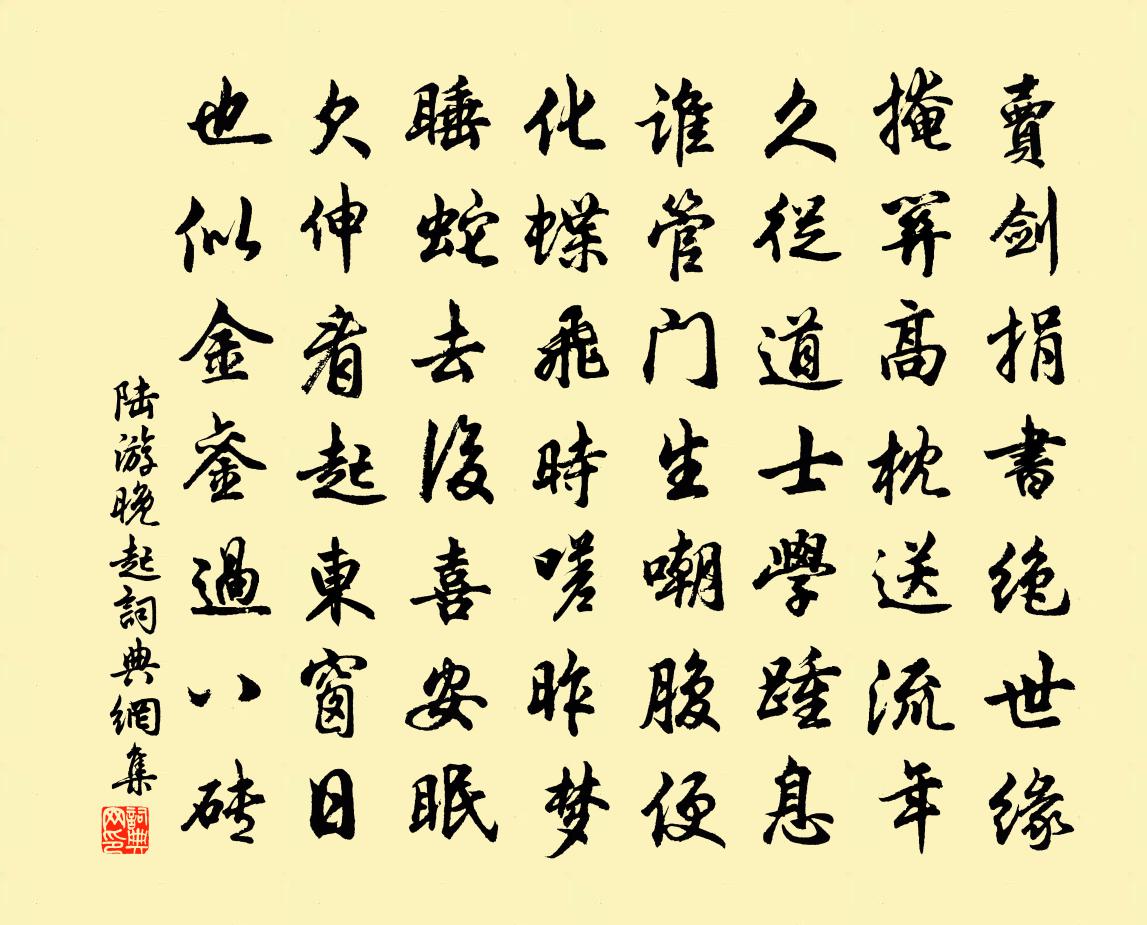 賣劍捐書絕世緣
掩關高枕送流年
久從道士學踵息
誰管门生嘲腹便
化蝶飛時嗟昨梦
睡蛇去後喜安眠
欠伸看起東窗日
也似金銮過八砖
陆游晚起詞典網集
詞典网印